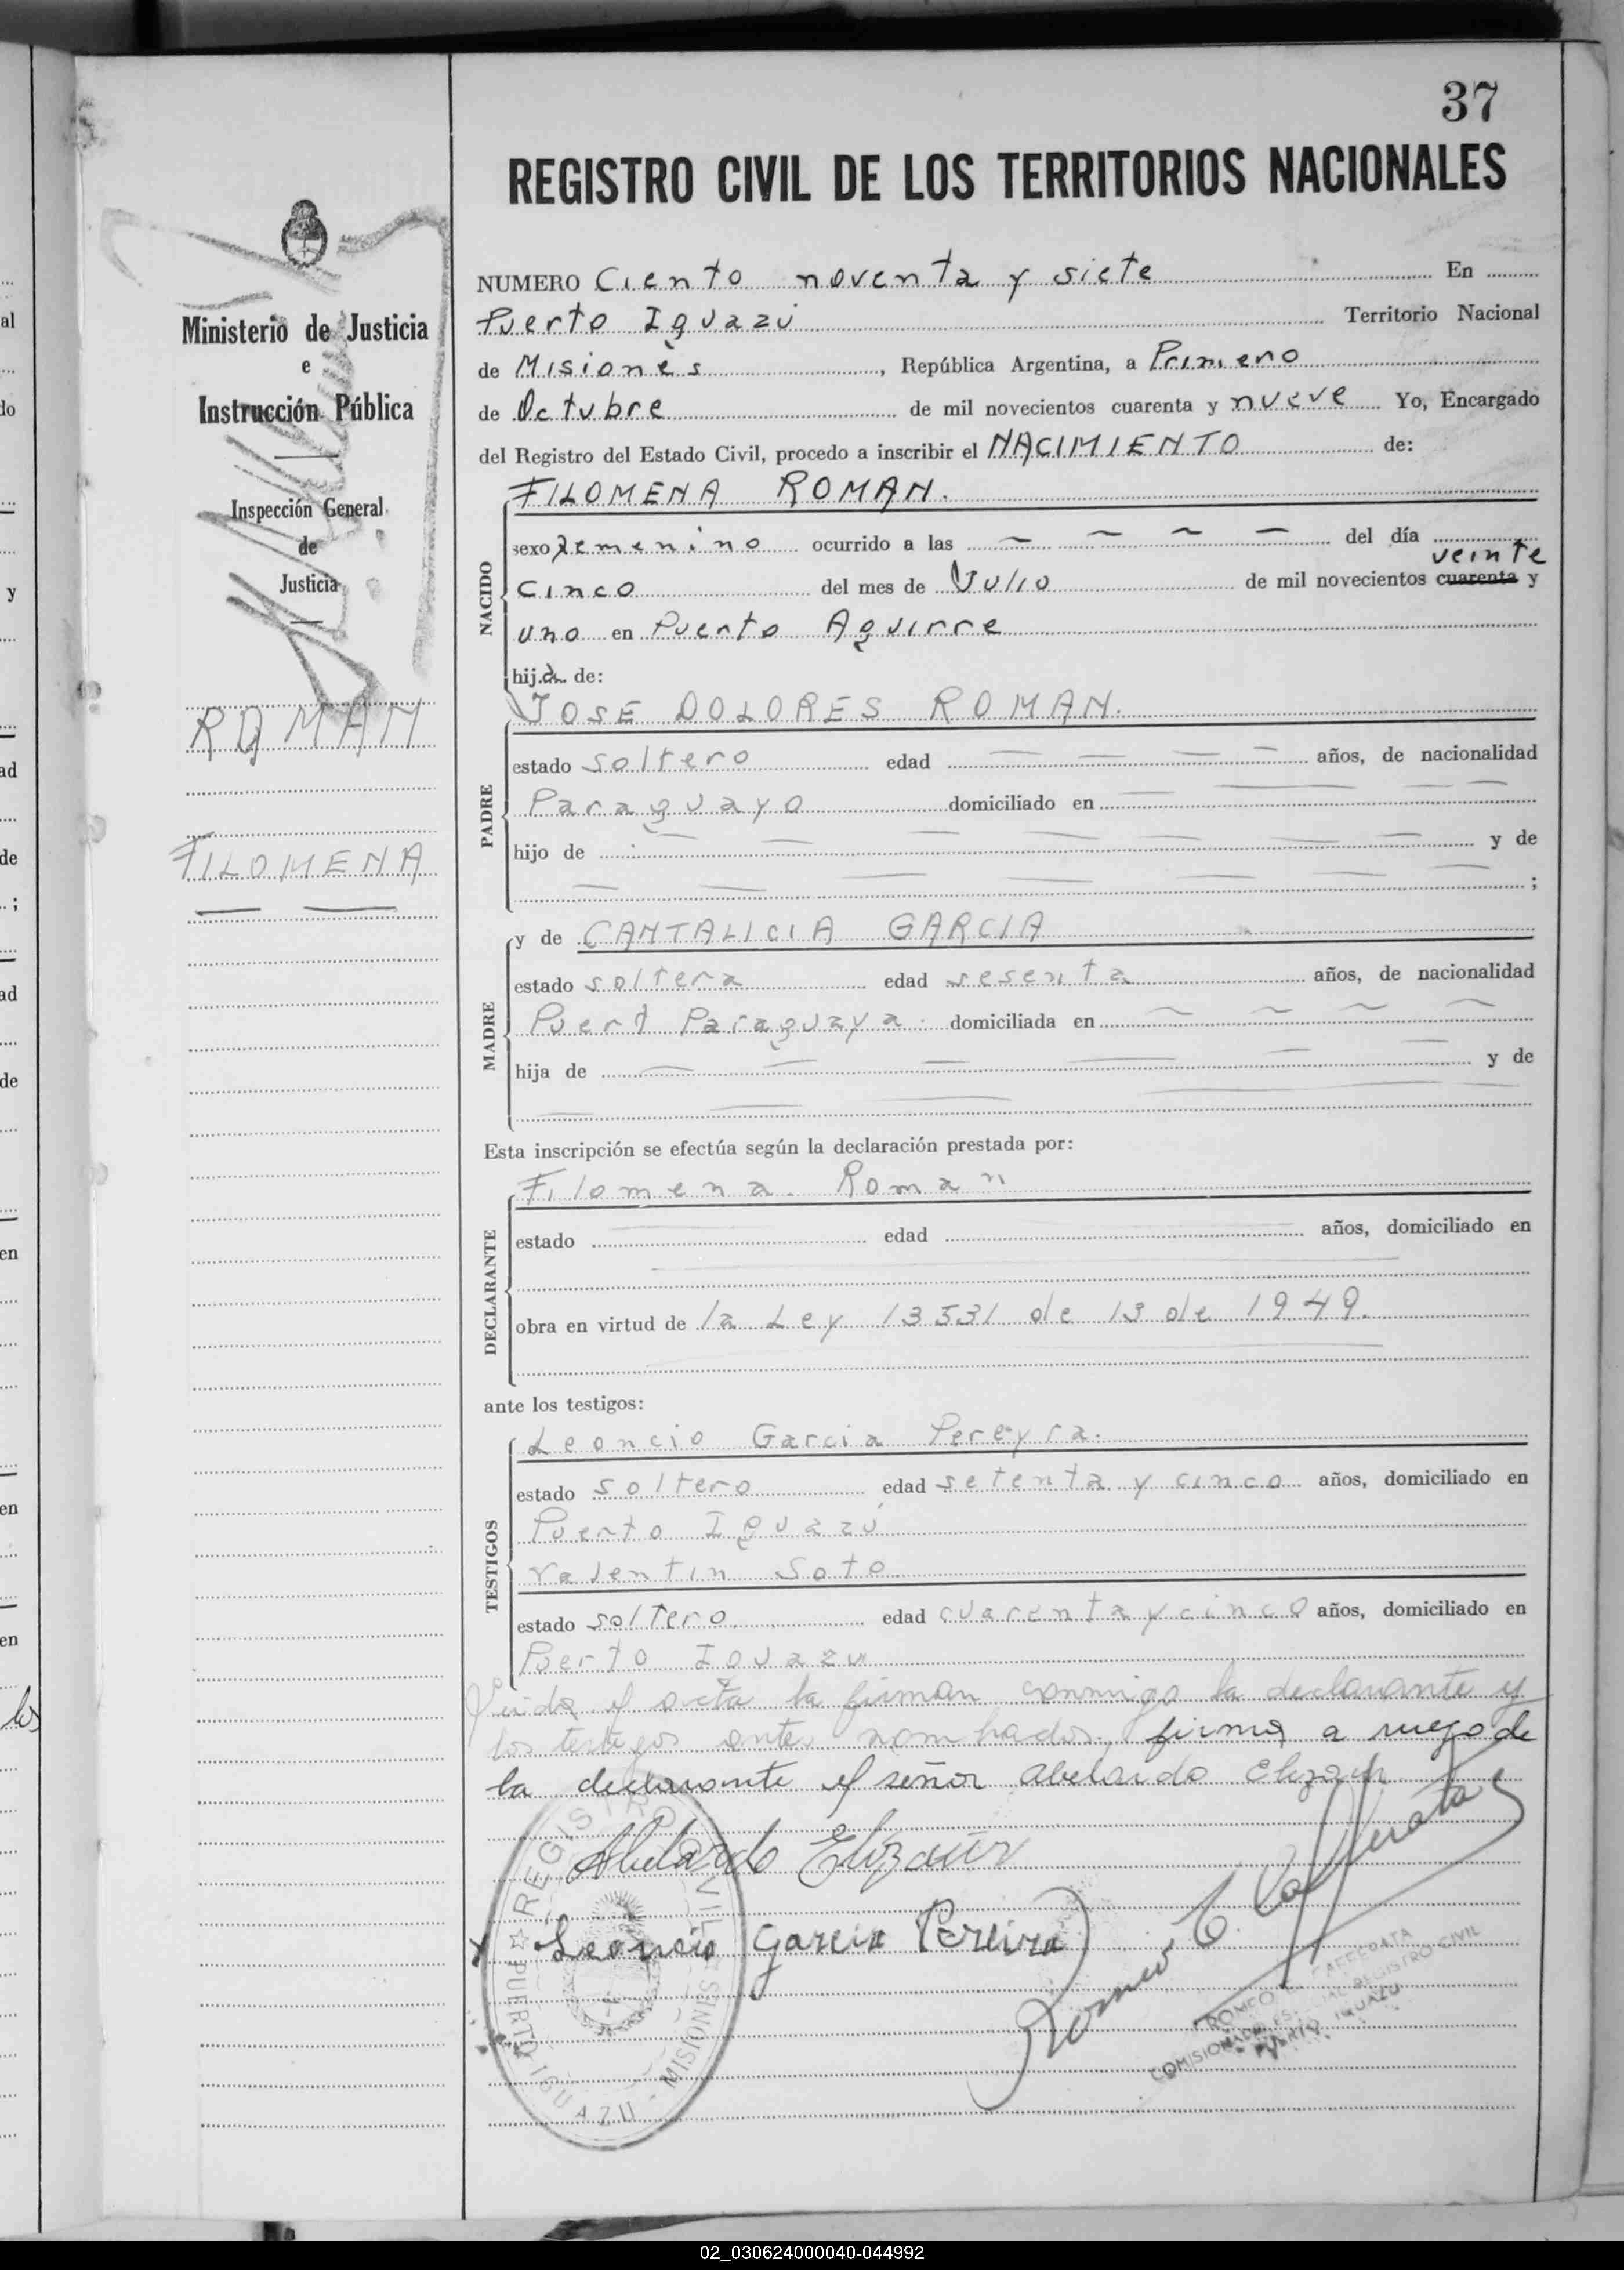 37
REGISTRO CIVIL DE LOS TERRITORIOS NACIONALES
Ministerio de Justicia
e
Instrucción Pública
Inspección General
de
Justicia
ROMAN
FILOMENA
NUMERO Ciento noventa y siete En
Puerto Iguazú Territorio Nacional
de Misiones, República Argentina, a Primero
de Octubre de mil novecientos cuarenta y nueve Yo, Encargado
del Registro del Estado Civil, procedo a inscribir el NACIMIENTO de:
FILOMENA ROMAN.
NACIDO
sexo femenino ocurrido a las — — — — del día
veinte
cinco del mes de Julio de mil novecientos cuarenta y
uno en Puerto Aguirre
hija de:
JOSE DOLORES ROMAN.
PADRE
estado soltero edad — — — — años, de nacionalidad
Paraguayo domiciliado en — — — —
hijo de — — — — — — y de
— — — — — — — ;
MADRE
y de CANTALICIA GARCIA
estado soltera edad sesenta años, de nacionalidad
Paraguaya. domiciliada en — — — —
hija de — — — — — — y de
— — — —
Esta inscripción se efectúa según la declaración prestada por:
Filomena Roman
DECLARANTE
estado edad años, domiciliado en
obra en virtud de la Ley 13531 de 13 de 1949.
ante los testigos:
TESTIGOS
Leoncio Garcia Pereyra.
estado soltero edad setenta y cinco años, domiciliado en
Puerto Iguazú
Valentin Soto
estado soltero edad cuarenta y cinco años, domiciliado en
Puerto Iguazu
Leida el acta la firman conmigo la declarante y
los testigos antes nombrados, firma a ruego de
la declarante el señor Abelardo Elizaur
Abelardo Elizaur
Leoncio Garcia Pereira
REGISTRO CIVIL
PUERTO IGUAZU - MISIONES
COMISIONADO
REGISTRO CIVIL
PUERTO IGUAZU
al
do
y
ad
de
;
ad
de
en
en
en
los
02_030624000040-044992